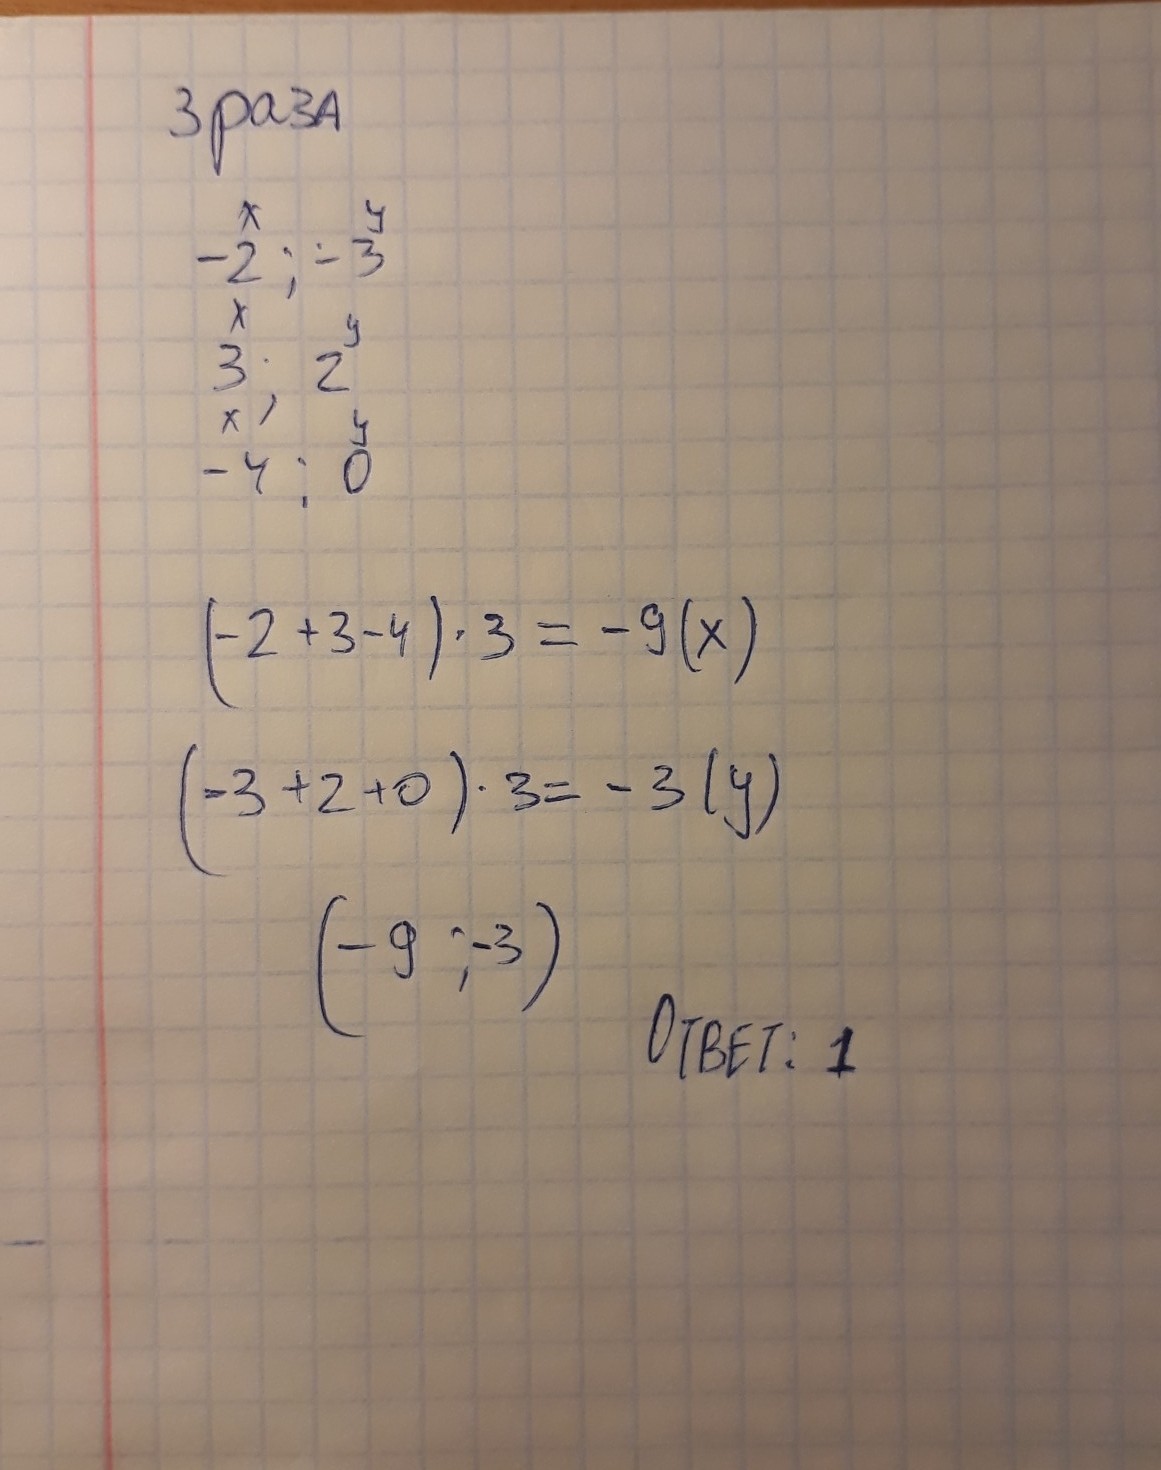 3 раза
x y
-2; -3
x y
3; 2
x y
-4; 0
(-2+3-4)·3=-9(x)
(-3+2+0)·3=-3(y)
(-9;-3)
Ответ: 1